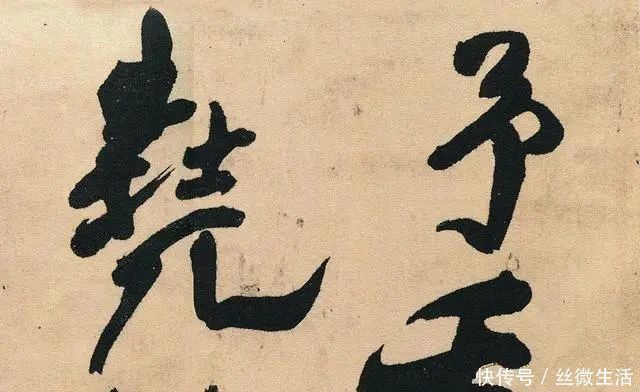 予
堯
快传号 / 丝微生活